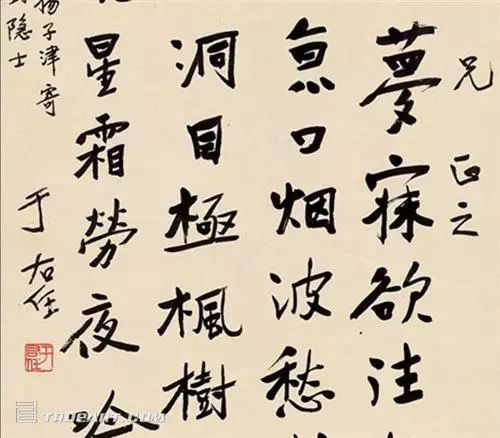 兄 正之
夢寐欲
口烟波愁
洞目極楓樹
星霜勞夜
揚子津寄
隐士
于右任